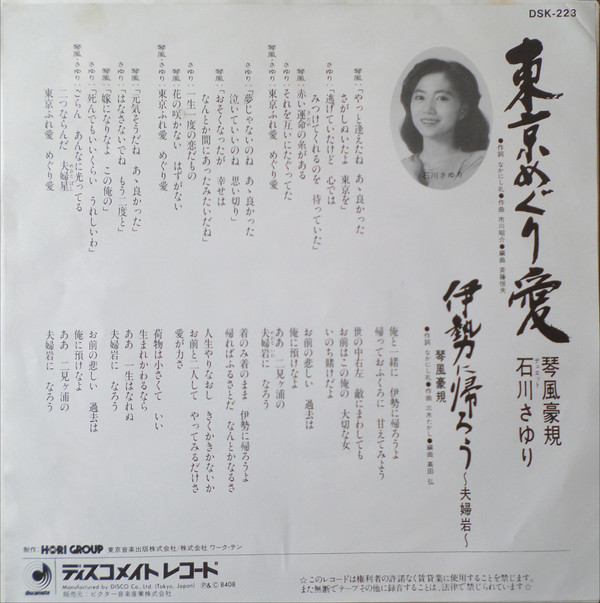 DSK-223
東京めぐり愛
●作詞 なかにし礼●作曲 市川昭介●編曲 斉藤恒夫
琴風豪規
デュエット
石川さゆり
石川さゆり
琴風:「やっと逢えたね あゝ良かった
さがしぬいたよ 東京を」
さゆり:「逃げていたけど 心では
みつけてくれるのを 待っていた」
琴風:赤い運命の糸がある
さゆり:それを互いにたぐってた
琴風・さゆり:東京ふれ愛 めぐり愛
さゆり:「夢じゃないのね あゝ良かった
泣いていいのね 思い切り」
琴風:「おそくなったが 幸せは
なんとか間にあったみたいだね」
さゆり:一生一度の恋だもの
琴風:花の咲かない はずがない
琴風・さゆり:東京ふれ愛 めぐり愛
琴風:「元気そうだね あゝ良かった」
さゆり:「はなさないでね もう二度と」
琴風:「嫁になりなよ この俺の」
さゆり:「死んでもいいくらい うれしいわ」
琴風:ごらん あんなに光ってる
さゆり:二つならんだ 夫婦星
琴風・さゆり:東京ふれ愛 めぐり愛
伊勢に帰ろう
〜夫婦岩〜
琴風豪規
●作詞 なかにし礼●作曲 三木たかし●編曲 高田 弘
俺と一緒に 伊勢に帰ろうよ
帰っておふくろに 甘えてみよう
世の中右左 敵にまわしても
お前はこの俺の 大切な女
いのち賭けだよ
お前の悲しい 過去は
俺に預けなよ
ああ 二見ヶ浦の
夫婦岩に なろう
着のみ着のまま 伊勢に帰ろうよ
帰ればふるさとだ なんとかなるさ
人生やりなおし きくかきかないか
お前と二人して やってみるだけさ
愛が力さ
荷物は小さくて いい
生まれかわるなら
ああ 一生はなれぬ
夫婦岩に なろう
お前の悲しい 過去は
俺に預けなよ
ああ 二見ヶ浦の
夫婦岩に なろう
制作: HORI GROUP 東京音楽出版株式会社/株式会社 ワーク・テン
discomate
ディスコメイト レコード
Manufactured by DISCO Co., Ltd (Tokyo, Japan) Ⓟ&Ⓒ 8408
販売元:ビクター音楽産業株式会社
☆このレコードは権利者の許諾なく賃貸業に使用することを禁じます。
また無断でテープその他に録音することは、法律で禁じられています☆